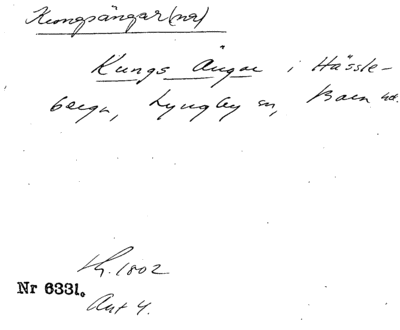 Kungsängar(na)
Kungs Ängar i Hässle-
berga, Lyngby sn, Bara hd.
Lh. 1802
Nr 6331.
Akt 4.